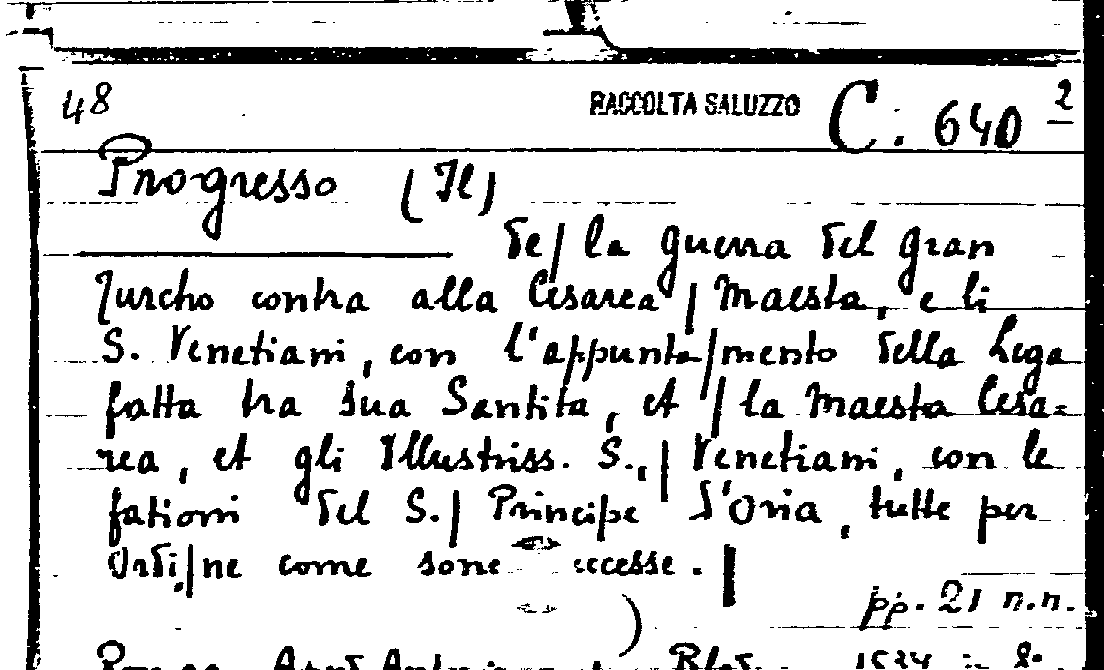 48 RACCOLTA SALUZZO C. 640 2
Progresso (Il)
de/ la guerra del gran
Turcho contra alla Cesarea / Maesta, e li
S. Venetiani, con l'appunta/mento della Lega
fatta tra sua Santita, et / la Maesta Cesa=
rea, et gli Illustriss. S., / Venetiani, con le
fationi del S./ Principe d'Oria, tutte per
Ordi/ne come sono
pp. 21 n.n.